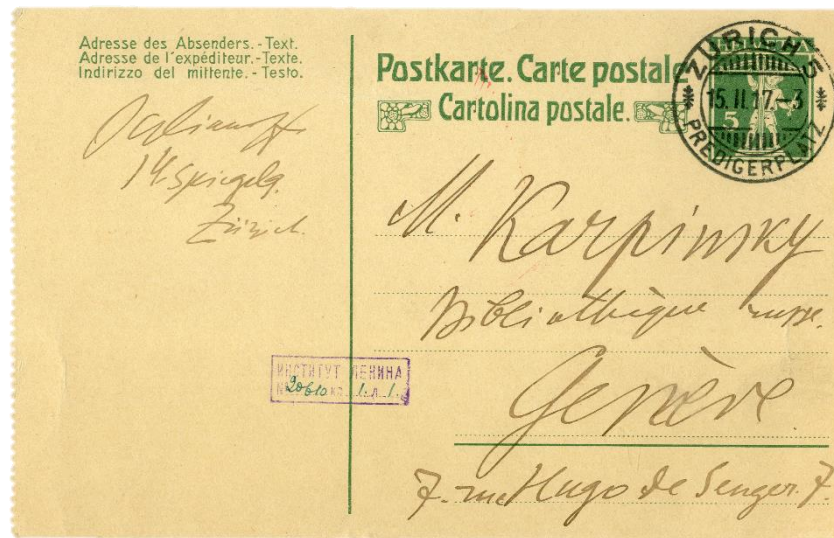 Adresse des Absenders.-Text.
Adresse de l'expéditeur.-Texte.
Indirizzo del mittente.-Testo.
Oulianoff
14 Spiegelg.
Zürich.
Postkarte. Carte postale
Cartolina postale.
ZÜRICH 5
15.II.17.-3
PREDIGERPLATZ
5
M. Karpinsky
Bibliothèque russe.
Genève.
7. rue Hugo de Senger. 7.
ИНСТИТУТ ЛЕНИНА
№ 20610 1. л. 1.